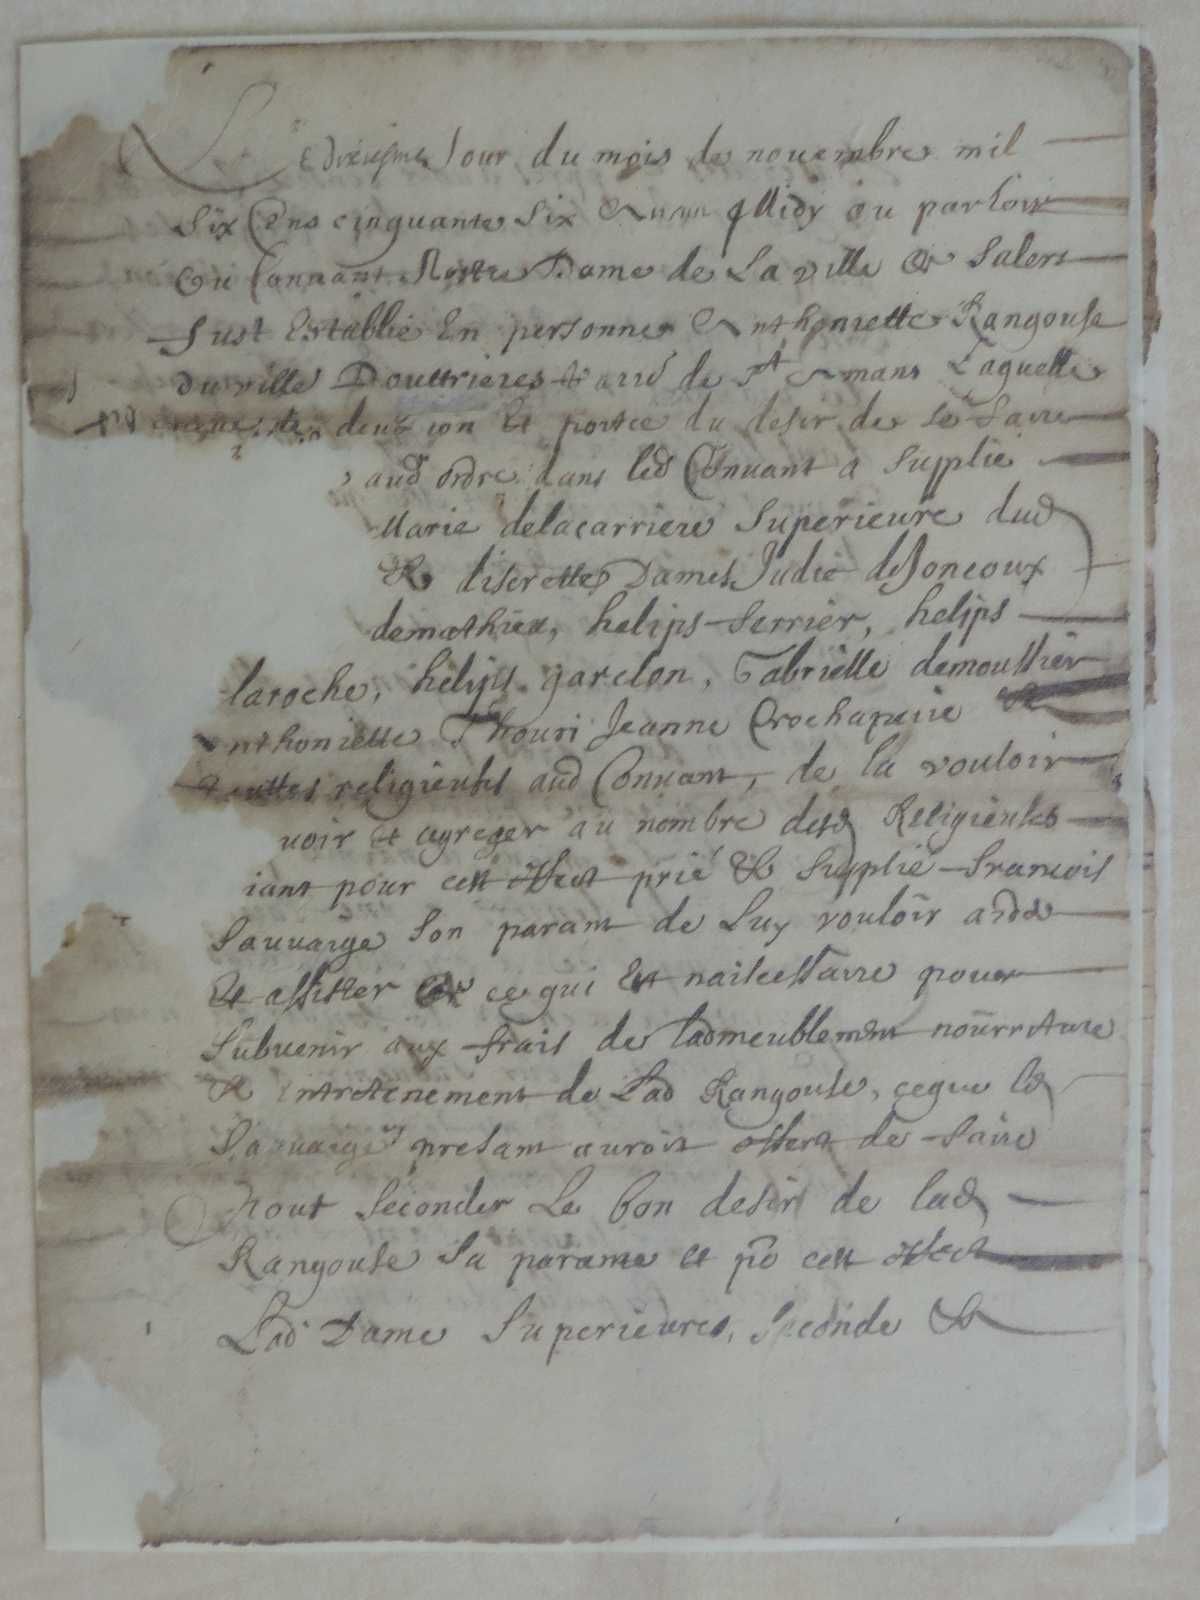 Le dixiesme Jour du mois de nouembre mil
Six Cens cinquante Six Midy ou parloir
du Connant Nostre Dame de La ville de Salers
fust Establie En personne Anthoniette Rangouse
du ville Douttrieres de St Amans Laquelle
deuotion et portee du desir de se faire
aud ordre dans led Conuant a Supplie
Marie delacarriere Superieure dud
& discrettes Dames Judic deJoncoux
demathieu, helips ferrier, helips
laroche, helips garclon, Gabrielle demoussier
Anthoniette Thouri Jeanne Crochapeire &
touttes religieuses aud Conuant, de la vouloir
uoir et agreger au nombre desd Religieuses
iant pour cett effect prié & Supplié francois
Sauuaige Son parant de Luy vouloir
et assister de ce qui est naisessaire pour
Subuenir aux frais de ladmeublement nourriture
& entretenement de Lad Rangouse, ceque led
Sauuaige presant auroit offert de faire
pour Seconder Le bon desir de lad
Rangouse Sa parante et po cett effect
Lad Dame Superieures, Seconde &